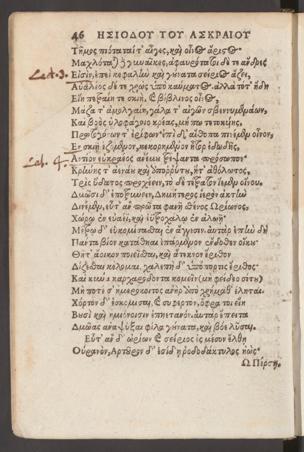 46 ΗΣΙΟΔΟΥ ΤΟΥ ΑΣΚΡΑΙΟΥ
Τῆμος πιόταταί τ' αἶγες, καὶ οἶνος ἄριστος
Μαχλόταται δὲ γυναῖκες, ἀφαυρότατοι δέ τε ἄνδρες
Lect. 3. Εἰσὶν, ἐπεὶ κεφαλὴν καὶ γούνατα σείριος ἄζει,
Αὐαλέος δέ τε χρὼς ὑπὸ καύματος. ἀλλὰ τότ' ἤδη
Εἴη πετραίη τε σκιὴ, καὶ βίβλινος οἶνος,
Μᾶζα τ' ἀμολγαίη, γάλα τ' αἰγῶν σβεννυμενάων,
Καὶ βοὸς ὑλοφάγοιο κρέας, μή πω τετοκυίης,
Πρωτογόνων τ' ἐρίφων· ἐπὶ δ' αἴθοπα πινέμεν οἶνον,
Ἐν σκιῇ ἑζόμενον, κεκορημένον ἦτορ ἐδωδῆς,
Lect. 4. Ἀντίον εὐκραέος ἀνέμου τρέψαντα πρόσωπον·
Κρήνης τ' ἀενάου καὶ ἀπορρύτου, ἥτ' ἀθόλωτος,
Τρὶς ὕδατος προχέειν, τὸ δὲ τέτρατον ἱέμεν οἴνου.
Δμωσὶ δ' ἐποτρύνειν, Δημήτερος ἱερὸν ἀκτὴν
Δινέμεν, εὖτ' ἂν πρῶτα φανῇ σθένος Ὠρίωνος,
Χώρῳ ἐν εὐαεῖ, καὶ ἐϋτροχάλῳ ἐν ἀλωῇ·
Μέτρῳ δ' εὖ κομίσασθαι ἐν ἄγγεσιν. αὐτὰρ ἐπὴν δὴ
Πάντα βίον κατάθηαι ἐπάρμενον ἔνδοθεν οἴκου
Θῆτ' ἄοικον ποιεῖσθαι, καὶ ἄτεκνον ἔριθον
Δίζεσθαι κέλομαι. χαλεπὴ δ' ὑπόπορτις ἔριθος·
Καὶ κύνα καρχαρόδοντα κομεῖν (μὴ φείδεο σίτου)
Μή ποτέ σ' ἡμερόκοιτος ἀνὴρ ἀπὸ χρήμαθ' ἕληται.
Χόρτον δ' ἐσκομίσαι, καὶ συρφετὸν, ὄφρα τοι εἴη
Βουσὶ καὶ ἡμιόνοισιν ἐπηετανόν. αὐτὰρ ἔπειτα
Δμῶας ἀναψῦξαι φίλα γούνατα, καὶ βόε λῦσαι.
Εὖτ' ἂν δ' Ὠρίων καὶ σείριος ἐς μέσον ἔλθῃ
Οὐρανὸν, Ἀρκτοῦρον δ' ἐσίδῃ ῥοδοδάκτυλος ἠώς·
Ὦ Πέρση,